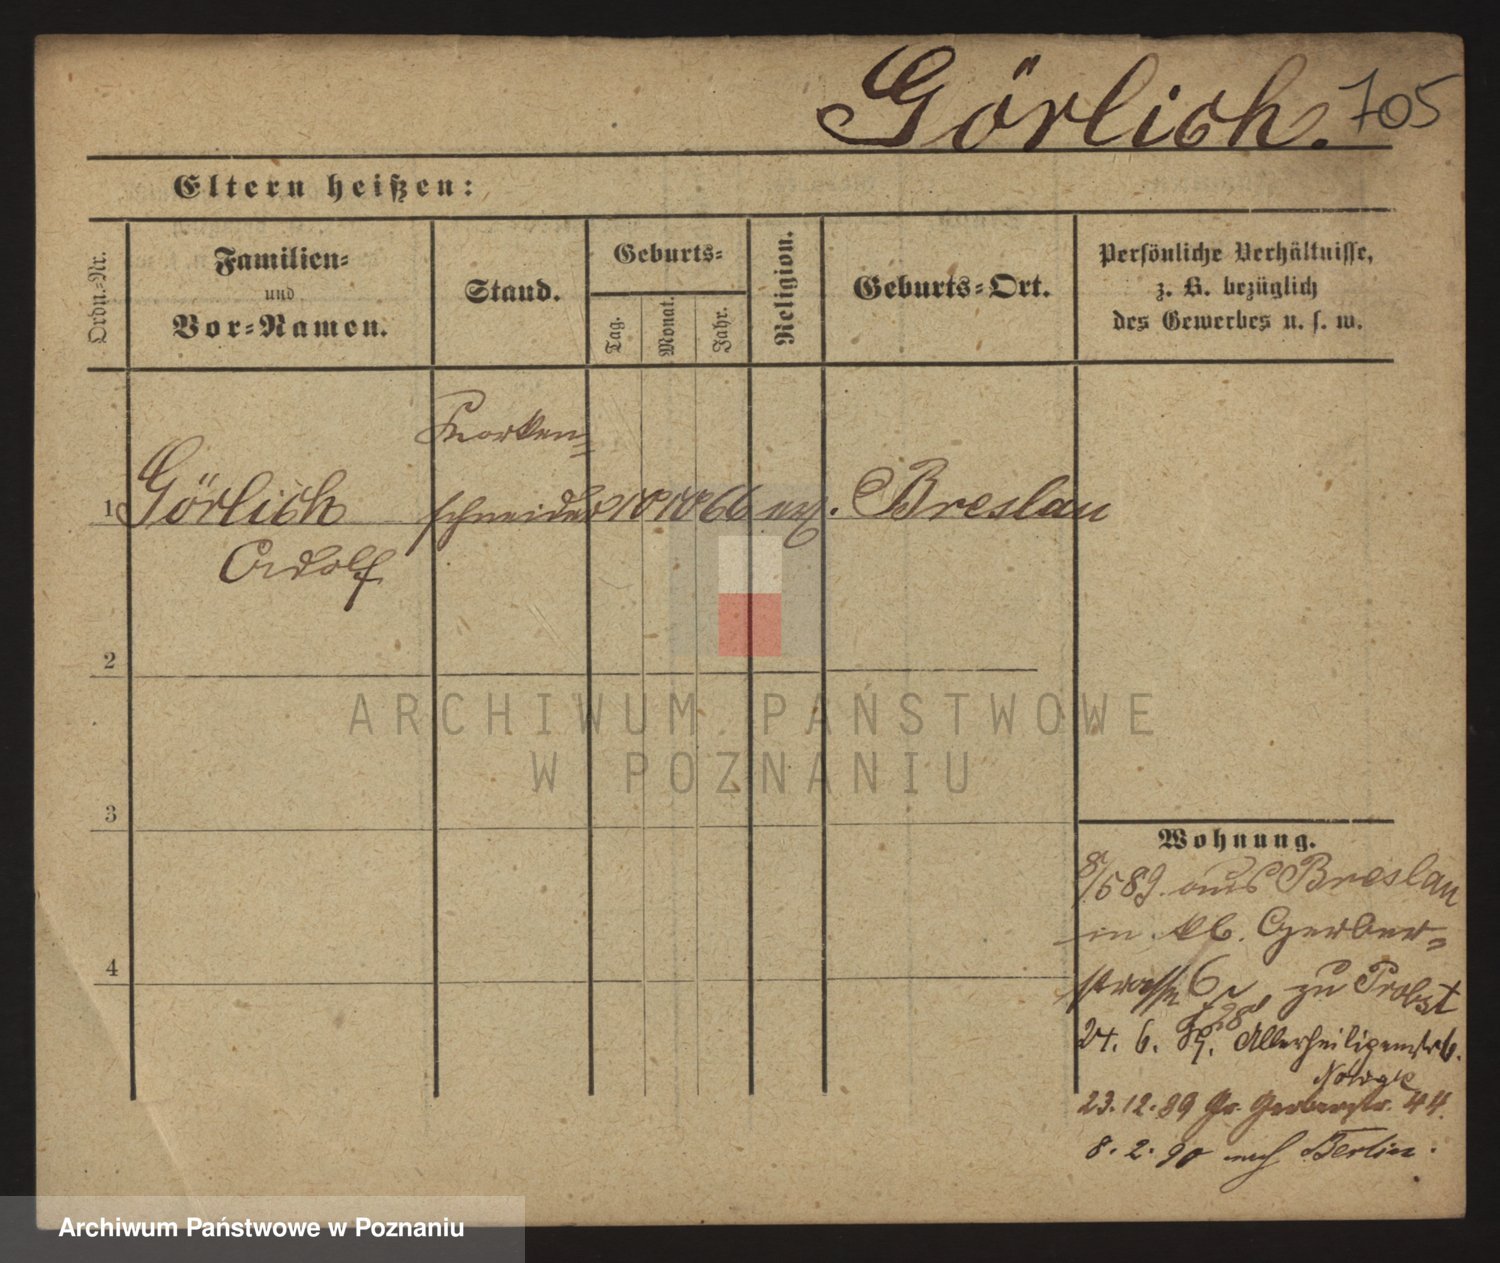 Görlich. 705
Eltern heißen:
Ordn.-Nr.
Familien-
und
Vor-Namen.
Stand.
Geburts-
Tag.
Monat.
Jahr.
Religion.
Geburts-Ort.
Persönliche Verhältnisse,
z. B. bezüglich
des Gewerbes u. s. w.
Korken-
1 Görlich schneider 10 10 66 ev. Breslau
Adolf
2
3
4
ARCHIWUM PAŃSTWOWE
W POZNANIU
Wohnung.
8/5 89. aus Breslau
in kl. Gerber-
strasse 6 zu Probst
24. 6. 89. Allerheiligenstr 6.
23.12.89 Gr. Gerberstr. 44.
8. 2. 90 nach Berlin.
Archiwum Państwowe w Poznaniu